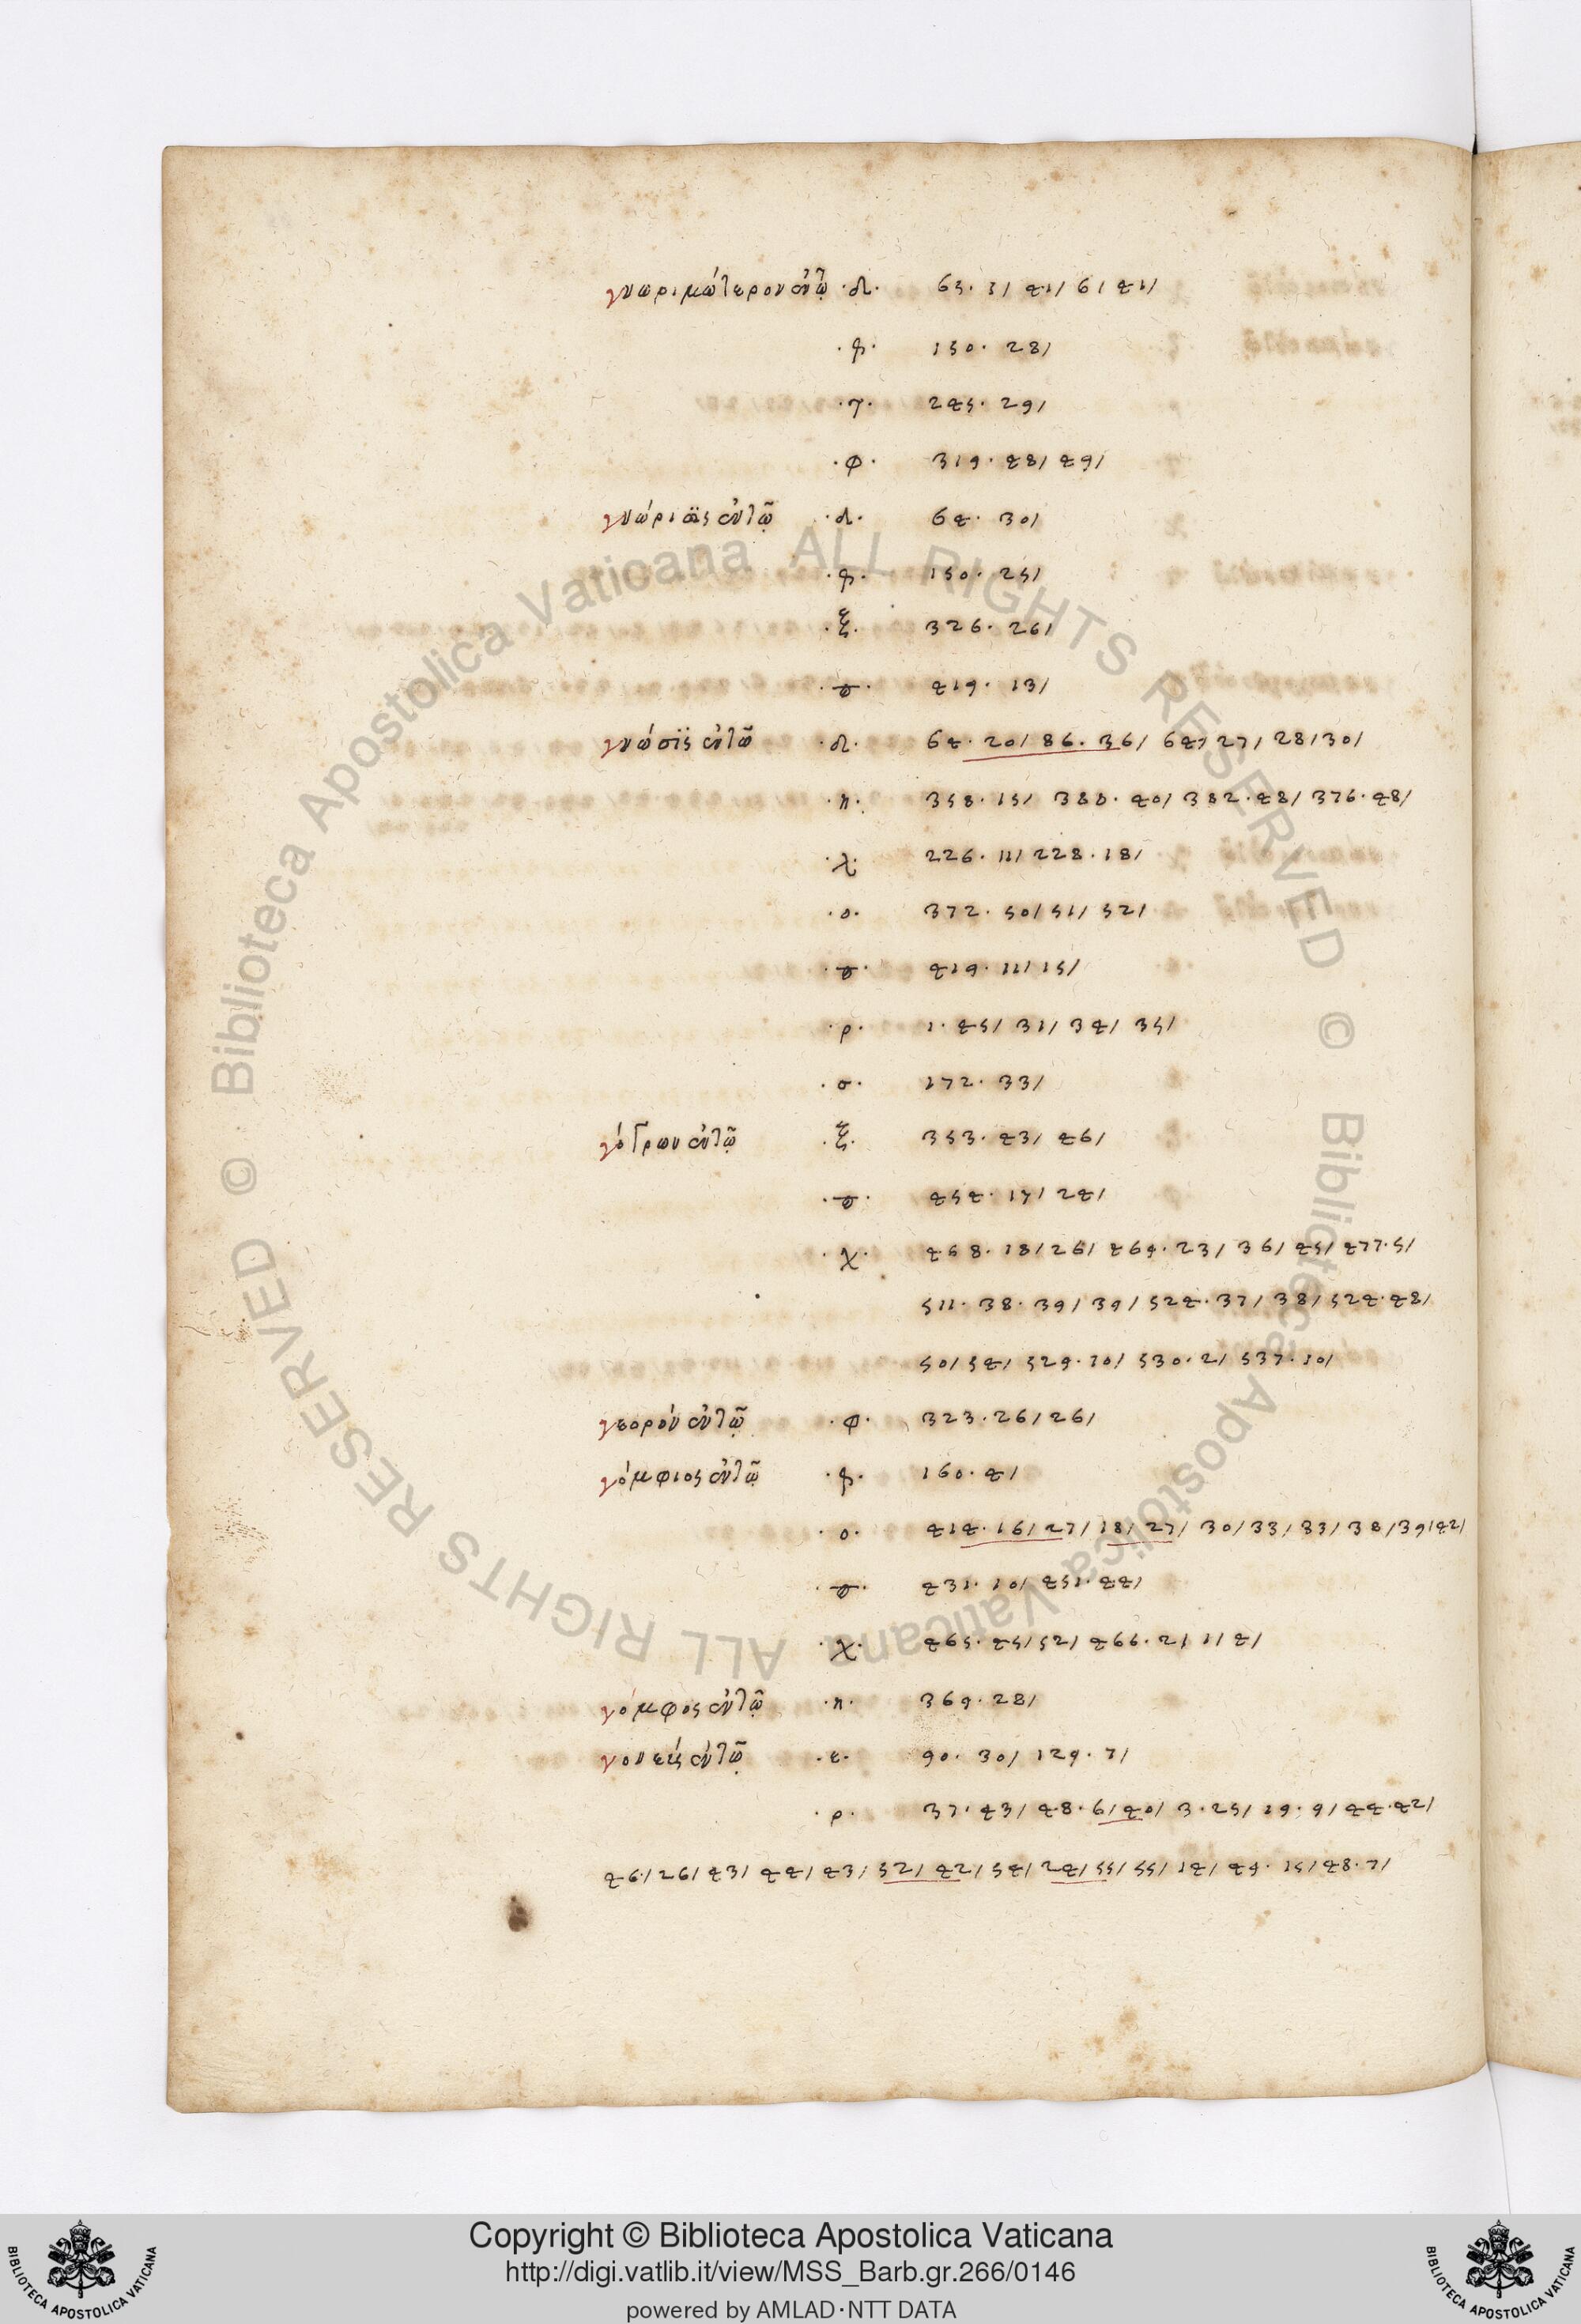 γνωριμώτερον ἐν τῷ ·δ· 65. 31 41/ 6/ 41/
·φ· 150. 28/
·τ· 245. 29/
·φ· 319. 48/ 49/
γνώρι ἐν τῷ ·δ· 64. 30/
150. 25/
·ξ· 326. 26/
419. 13/
γνῶσις ἐν τῷ ·δ· 64. 20/ 86. 36/ 64/ 27/ 28/ 30/
·π· 358. 15/ 380. 40/ 382. 48/ 376. 48/
·λ· 226. 11/ 228. 18/
·ο· 372. 50/ 51/ 52/
419. 11/ 15/
·ρ· 1. 45/ 31/ 34/ 35/
·σ· 172. 33/
ἐν τῷ ·ξ· 353. 43/ 46/
454. 17/ 24/
·χ· 468. 18/ 26/ 469. 23/ 36/ 45/ 477. 5/
511. 38. 39/ 39/ 524. 37/ 38/ 524. 48/
50/ 54/ 529. 10/ 530. 2/ 537. 10/
γεορὸν ἐν τῷ ·φ· 323. 26/ 26/
γόμφιος ἐν τῷ 160. 4/
·ο· 414. 16/ 27/ 18/ 27/ 30/ 33/ 33/ 38/ 39/ 42/
431. 10/ 451. 44/
·χ· 465. 45/ 52/ 466. 2/ 1/ 4/
γόμφος ἐν τῷ ·π· 369. 28/
γονεῖς ἐν τῷ ·ε· 90. 30/ 129. 7/
·ρ· 37. 43/ 48. 6/ 40/ 3. 25/ 19. 9/ 44. 42/
46/ 26/ 43/ 44/ 43/ 52/ 42/ 54/ 24/ 55/ 55/ 14/ 49. 15/ 48. 7/
© Biblioteca Apostolica Vaticana ALL RIGHTS RESERVED © Biblioteca Apostolica Vaticana ALL RIGHTS RESERVED
Copyright © Biblioteca Apostolica Vaticana
http://digi.vatlib.it/view/MSS_Barb.gr.266/0146
powered by AMLAD·NTT DATA
BIBLIOTECA APOSTOLICA VATICANA
BIBLIOTECA APOSTOLICA VATICANA